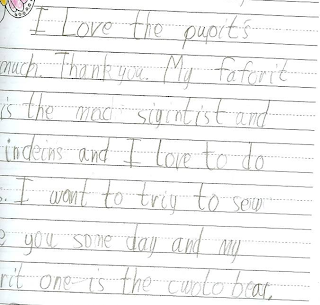 I Love the pupit's
much. Thank you. My faforit
is the mad sigintist and
indeins and I Love to do
. I wont to triy to sew
e you some day and my
rit one is the cwolo bear,